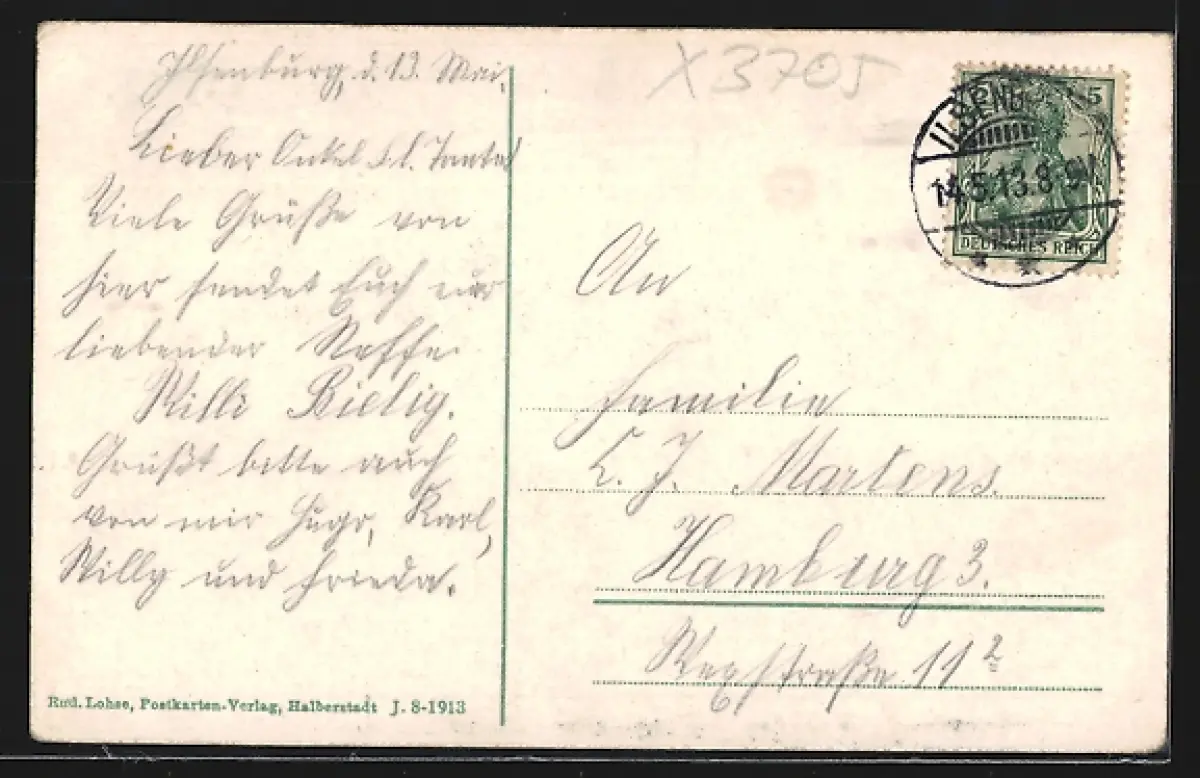 Ilsenburg, d. 13. Mai.
Lieber Onkel u. l. Tante!
Viele Grüße von
hier sendet Euch nur
liebender Neffe
Willi Bielig.
Grüßt bitte auch
von mir Hugo, Karl,
Willy und Frieda.
Rud. Lohse, Postkarten-Verlag, Halberstadt J. 8-1913
X3705
5
ILSENB
14.5.13.8-9V
DEUTSCHES REICH
An
Familie
C. J. Martens.
Hamburg 3.
Wexstraße 11²